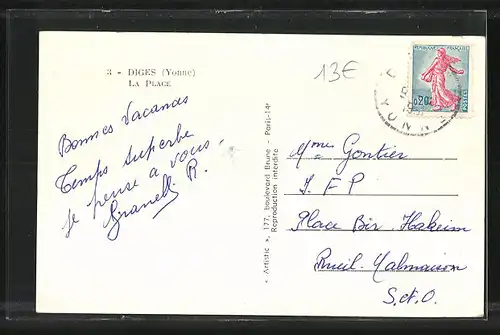 3 - DIGES (Yonne)
LA PLACE
13€
Bonnes Vacances
Temps superbe
je pense a vous.
R.
« Artistic », 177, boulevard Brune - Paris-14e
Reproduction interdite
REPUBLIQUE FRANÇAISE
0,20
POSTES
YONNE
Mme Gontier
I F P
Place Bir Hakeim
Rueil-Malmaison
S.et.O.